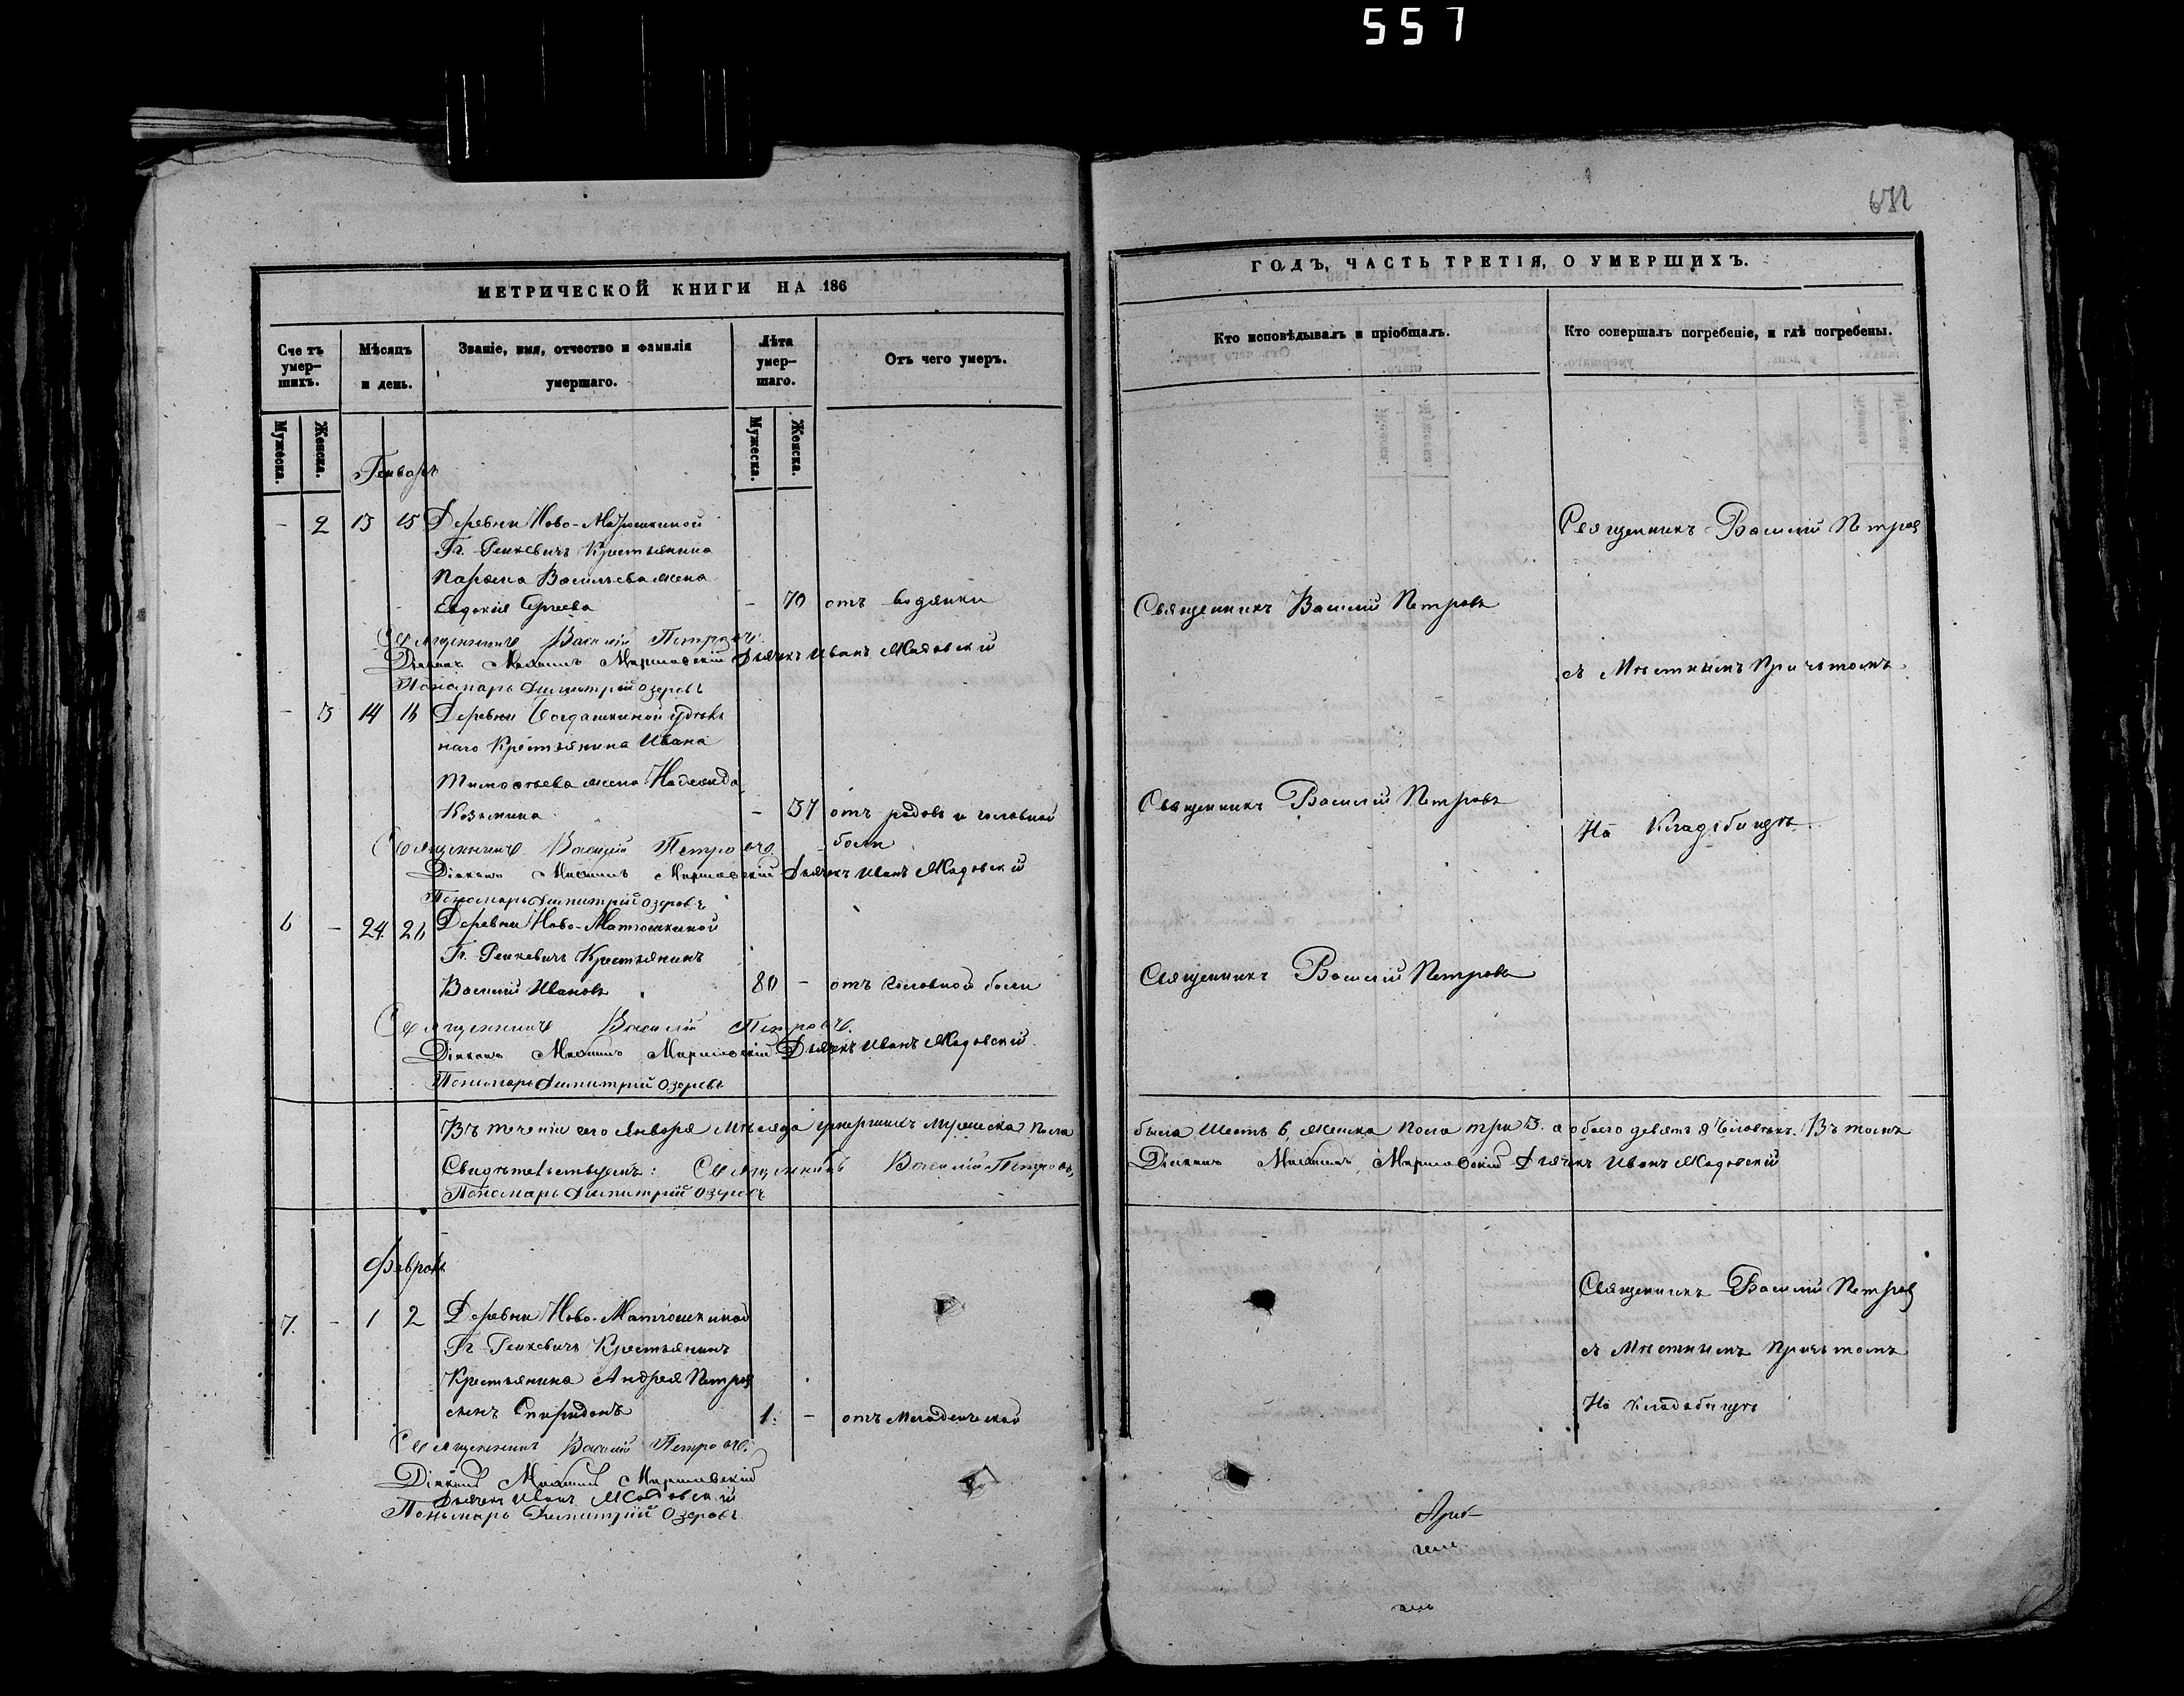 557
682
МЕТРИЧЕСКОЙ КНИГИ НА 186
Сче тъ умер-шихъ.
Мѣсяцъ и день.
Званіе, имя, отчество и фамилія умершаго.
Лѣта умер-шаго.
Отъ чего умеръ.
Мужеска.
Женска.
Мужеска.
Женска.
Генварь
- 2 13 15 Деревни Ново-Матюшкиной
Гг. Ренкевичъ Крестьянина
Васильева жена
Евдокія Сергѣева - 70 отъ водянки
Священникъ Василій Петровъ.
Діаконъ Михаилъ Дьячекъ Иванъ Жадовскій
Пономарь Димитрій Озеровъ
- 3 14 16 Деревни Богдашкиной удѣль
наго Крестьянина Ивана
Тимофѣева жена Надежда
Козьмина - 37 отъ родовъ и головной
боли
Священникъ Василій Петровъ
Діаконъ Михаилъ Дьячекъ Иванъ Жадовскій
Пономарь Димитрій Озеровъ
6 - 24 26 Деревни Ново-Матюшкиной
Гг. Ренкевичъ Крестьянинъ
Василій Ивановъ 80 - отъ головной боли
Священникъ Василій Петровъ.
Діаконъ Михаилъ Дьячекъ Иванъ Жадовскій
Пономарь Димитрій Озеровъ
Въ теченіи сего Января мѣсяца умершихъ мужеска пола
Свидѣтельствуемъ: Священникъ Василій Петровъ,
Пономарь Димитрій Озеровъ
Февраль
7. - 1 2 Деревни Ново-Матюшкиной
Гг. Ренкевичъ Крестьянинъ
Крестьянина Андрея Петров
сынъ Спиридонъ 1. - отъ младенческой
Священникъ Василій Петровъ.
Діаконъ Михаилъ
Дьячекъ Иванъ Жадовскій
Пономарь Димитрій Озеровъ
ГОДЪ, ЧАСТЬ ТРЕТІЯ, О УМЕРШИХЪ.
Кто исповѣдывалъ и пріобщалъ.
Кто совершалъ погребеніе, и гдѣ погребены.
Священникъ Василій Петров
Священникъ Василій Петровъ
съ Мѣстнымъ Причтомъ
Священникъ Василій Петровъ
На Кладбищѣ
Священникъ Василій Петровъ
было Шесть 6, женска пола три 3. а обоего девять 9 Человѣкъ. Въ томъ
Діаконъ Михаилъ Дьячекъ Иванъ Жадовскій
Священникъ Василій Петров
съ Мѣстнымъ Причтомъ
На Кладбищѣ